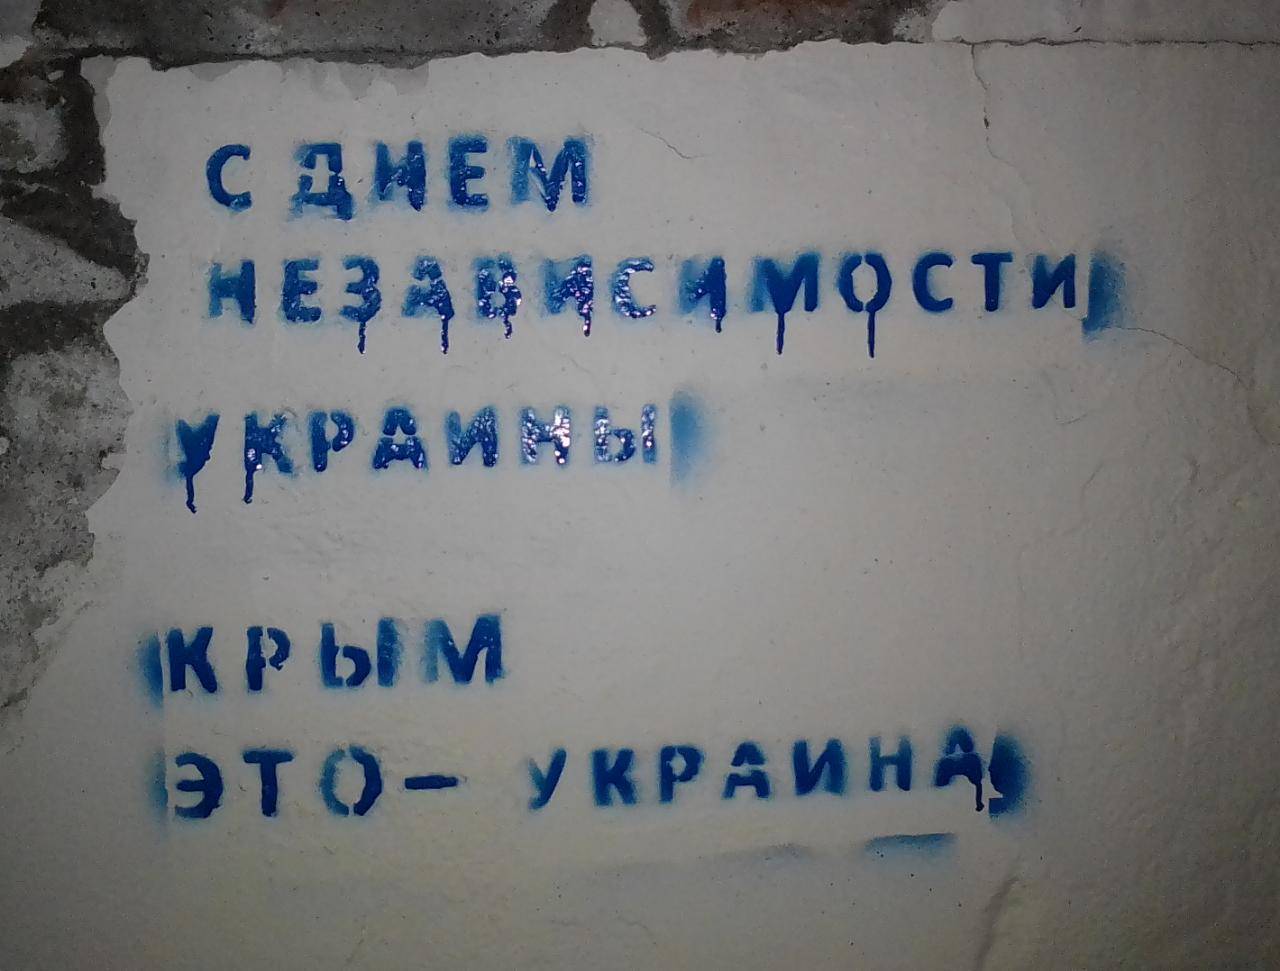 С ДНЕМ
НЕЗАВИСИМОСТИ
УКРАИНЫ
КРЫМ
ЭТО- УКРАИНА